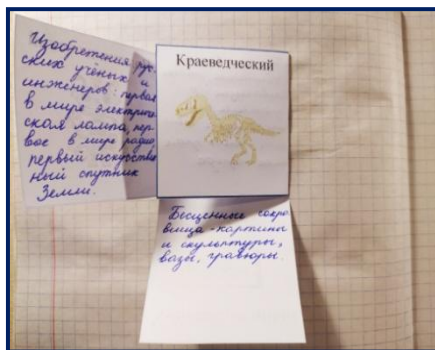 Изобретения рус-
ских учёных и
инженеров: первая
в мире электриче
ская лампа, пер-
вое в мире радио,
первый искусстве
нный спутник
Земли.
Краеведческий
Бесценные сокро
вища - картины
и скульптуры,
вазы, гравюры.